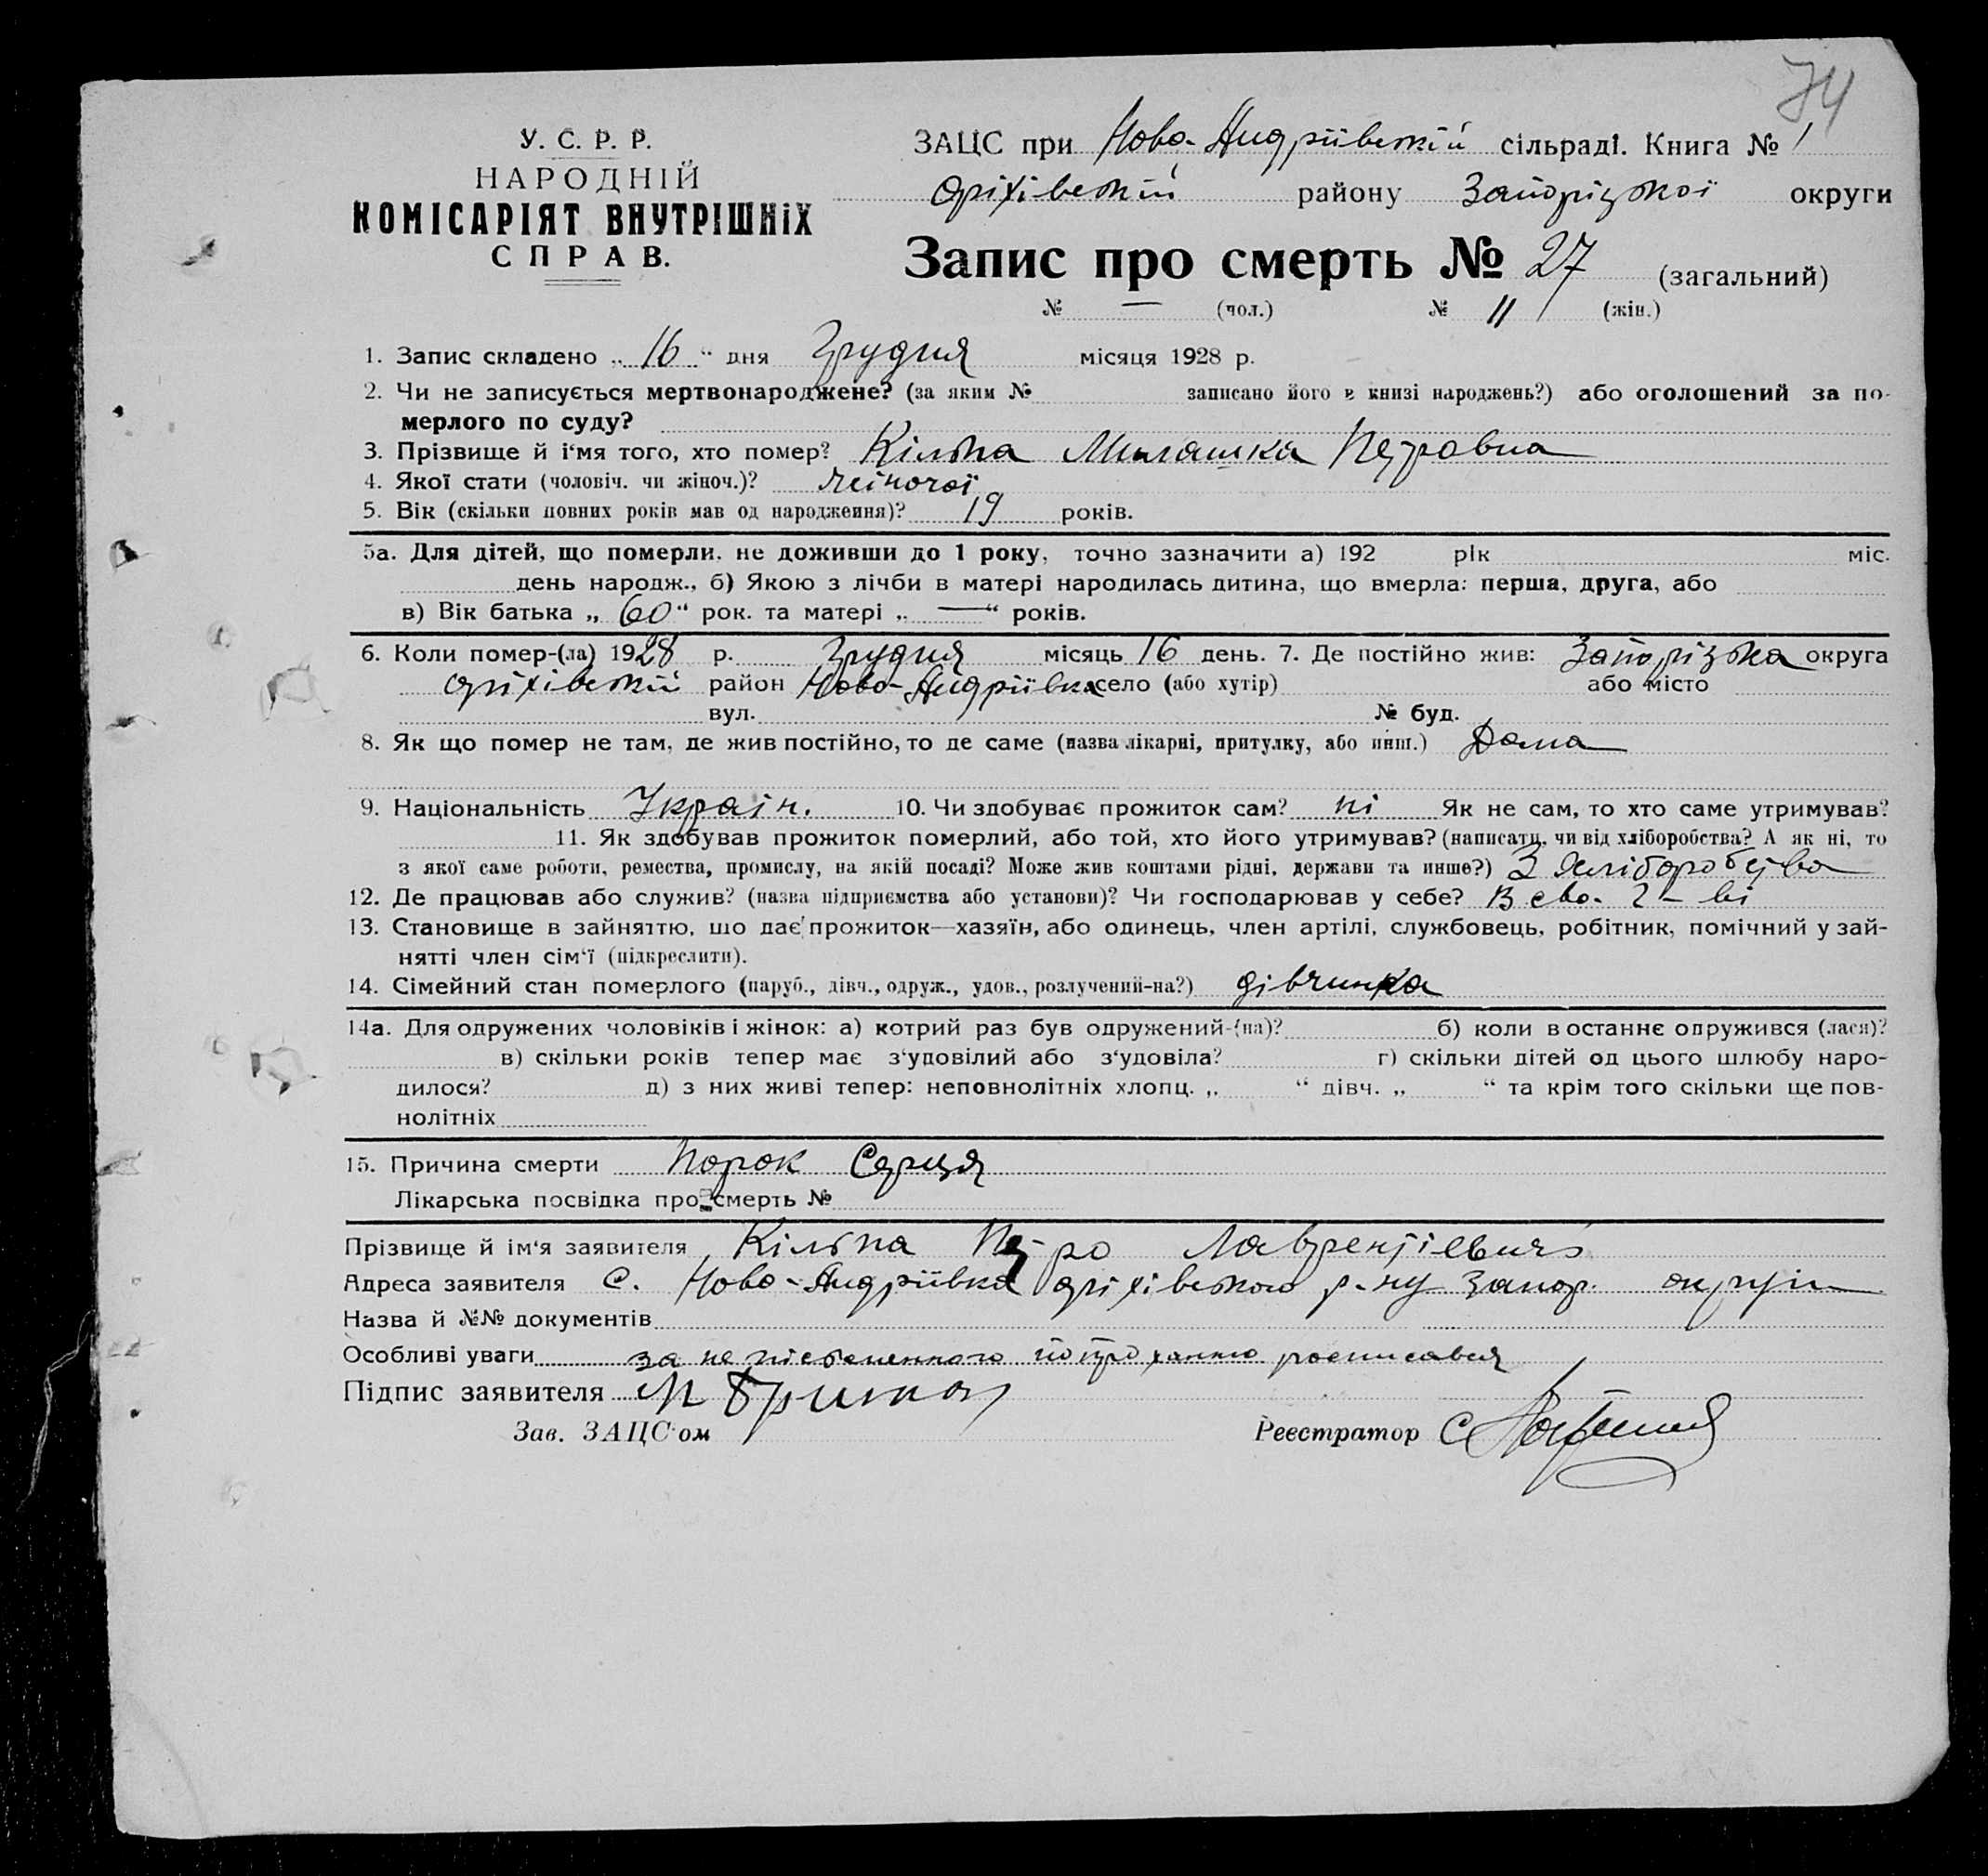 74
У. С. Р. Р.
НАРОДНІЙ
КОМІСАРІЯТ ВНУТРІШНІХ
СПРАВ.
ЗАЦС при Ново-Андріївській сільраді. Книга № 1
Оріхівській району Запорізької округи
Запис про смерть № 27 (загальний)
№ — (чол.) № 11 (жін.)
1. Запис складено „16“ дня Грудня місяця 1928 р.
2. Чи не записується мертвонароджене? (за яким № записано його в книзі народжень?) або оголошений за по-
мерлого по суду?
3. Прізвище й і‘мя того, хто помер? Кільпа Милашка Петровна
4. Якої стати (чоловіч. чи жіноч.)? жіночої
5. Вік (скільки повних років мав од народження)? 19 років.
5а. Для дітей, що померли, не доживши до 1 року, точно зазначити а) 192 рік міс.
день народж., б) Якою з лічби в матері народилась дитина, що вмерла: перша, друга, або
в) Вік батька „60“ рок. та матері „—“ років.
6. Коли помер-(ла) 1928 р. Грудня місяць 16 день. 7. Де постійно жив: Запорізька округа
Оріхівській район Ново-Андріївка село (або хутір) або місто
вул. № буд.
8. Як що помер не там, де жив постійно, то де саме (назва лікарні, притулку, або инш.) Дома
9. Національність Україн. 10. Чи здобуває прожиток сам? ні Як не сам, то хто саме утримував?
11. Як здобував прожиток померлий, або той, хто його утримував? (написати, чи від хліборобства? А як ні, то
з якої саме роботи, ремества, промислу, на якій посаді? Може жив коштами рідні, держави та инше?) З Хліборобства
12. Де працював або служив? (назва підприємства або установи)? Чи господарював у себе? В сво. г-ві
13. Становище в зайняттю, що дає прожиток—хазяїн, або одинець, член артілі, службовець, робітник, помічний у зай-
нятті член сім‘ї (підкреслити).
14. Сімейний стан померлого (паруб., дівч., одруж., удов., розлучений-на?) дівчинка
14а. Для одружених чоловіків і жінок: а) котрий раз був одружений-(на)? б) коли востаннє одружився (лася)?
в) скільки років тепер має з‘удовілий або з‘удовіла? г) скільки дітей од цього шлюбу наро-
дилося? д) з них живі тепер: неповнолітніх хлопц. „ “ дівч. „ “ та крім того скільки ще пов-
нолітніх
15. Причина смерти Порок Серця
Лікарська посвідка про смерть №
Прізвище й ім‘я заявителя Кільпа Петро Лаврентієвич
Адреса заявителя С. Ново-Андріївка Оріхівського р-ну Запор. округи
Назва й №№ документів
Особливі уваги за не письменного по проханню росписався
Підпис заявителя
Зав. ЗАЦС‘ом Реєстратор